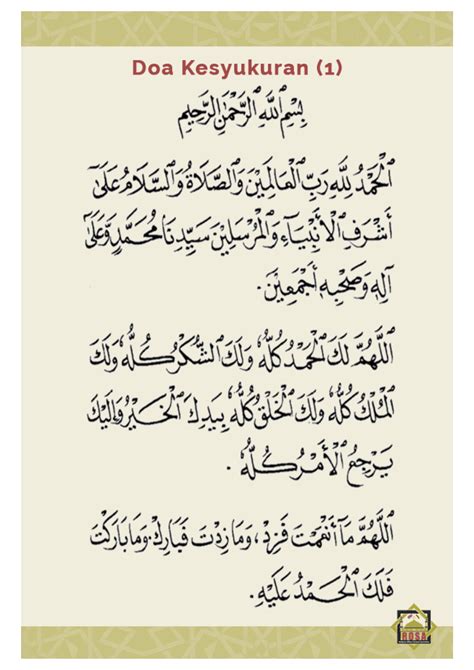 Doa Kesyukuran (1)
بِسْمِ اللَّهِ الرَّحْمَنِ الرَّحِيمِ
اَلْحَمْدُ لِلَّهِ رَبِّ الْعَالَمِيْنَ وَالصَّلَاةُ وَالسَّلَامُ عَلَى
أَشْرَفِ الْأَنْبِيَاءِ وَالْمُرْسَلِيْنَ سَيِّدِنَا مُحَمَّدٍ وَعَلَى
آلِهِ وَصَحْبِهِ أَجْمَعِيْنَ.
اَللَّهُمَّ لَكَ الْحَمْدُ كُلُّهُ وَلَكَ الشُّكْرُ كُلُّهُ وَلَكَ
الْمُلْكُ كُلُّهُ وَلَكَ الْخَلْقُ كُلُّهُ بِيَدِكَ الْخَيْرُ وَإِلَيْكَ
يَرْجِعُ الْأَمْرُ كُلُّهُ.
اَللَّهُمَّ مَا أَنْعَمْتَ فَزِدْ، وَمَا زِدْتَ فَبَارِكْ وَمَا بَارَكْتَ
فَلَكَ الْحَمْدُ عَلَيْهِ
ROSA